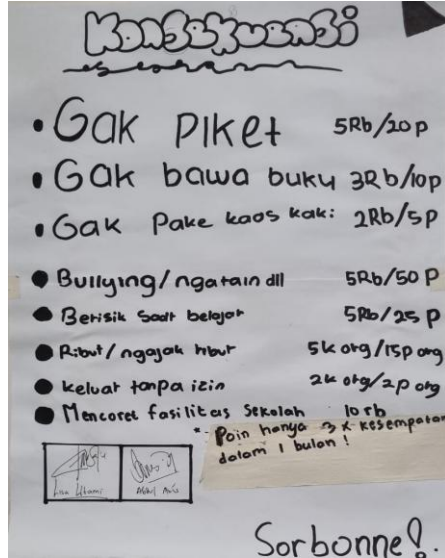 Konsekuensi
• Gak Piket 5Rb/20p
• Gak bawa buku 3Rb/10p
• Gak Pake kaos kaki 2Rb/5p
• Bullying/ngatain dll 5Rb/50 P
• Berisik Saat belajar 5Rb/25 P
• Ribut/ngajak ribut 5k org/15p org
• keluar tanpa izin 2k org/2p org
• Mencoret fasilitas Sekolah 10 rb
*- Poin hanya 3x kesempatan
dalam 1 bulan!
Sorbonne